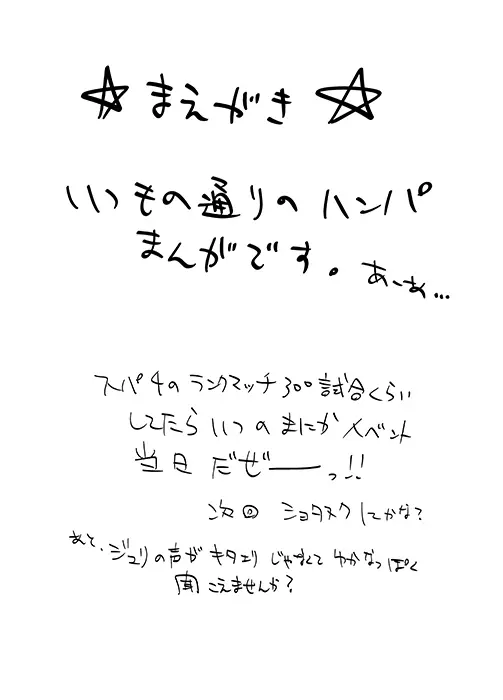 ☆ まえがき ☆
いつもの通りのハンパ
まんがです。あーあ…
スパ4のランクマッチ300試合くらい
してたらいつのまにかイベント
当日だぜーーっ!!
次回 ショタスクにかな?
あと、ジュリの声がキタエリじゃなくてわかなっぽく
聞こえませんか?